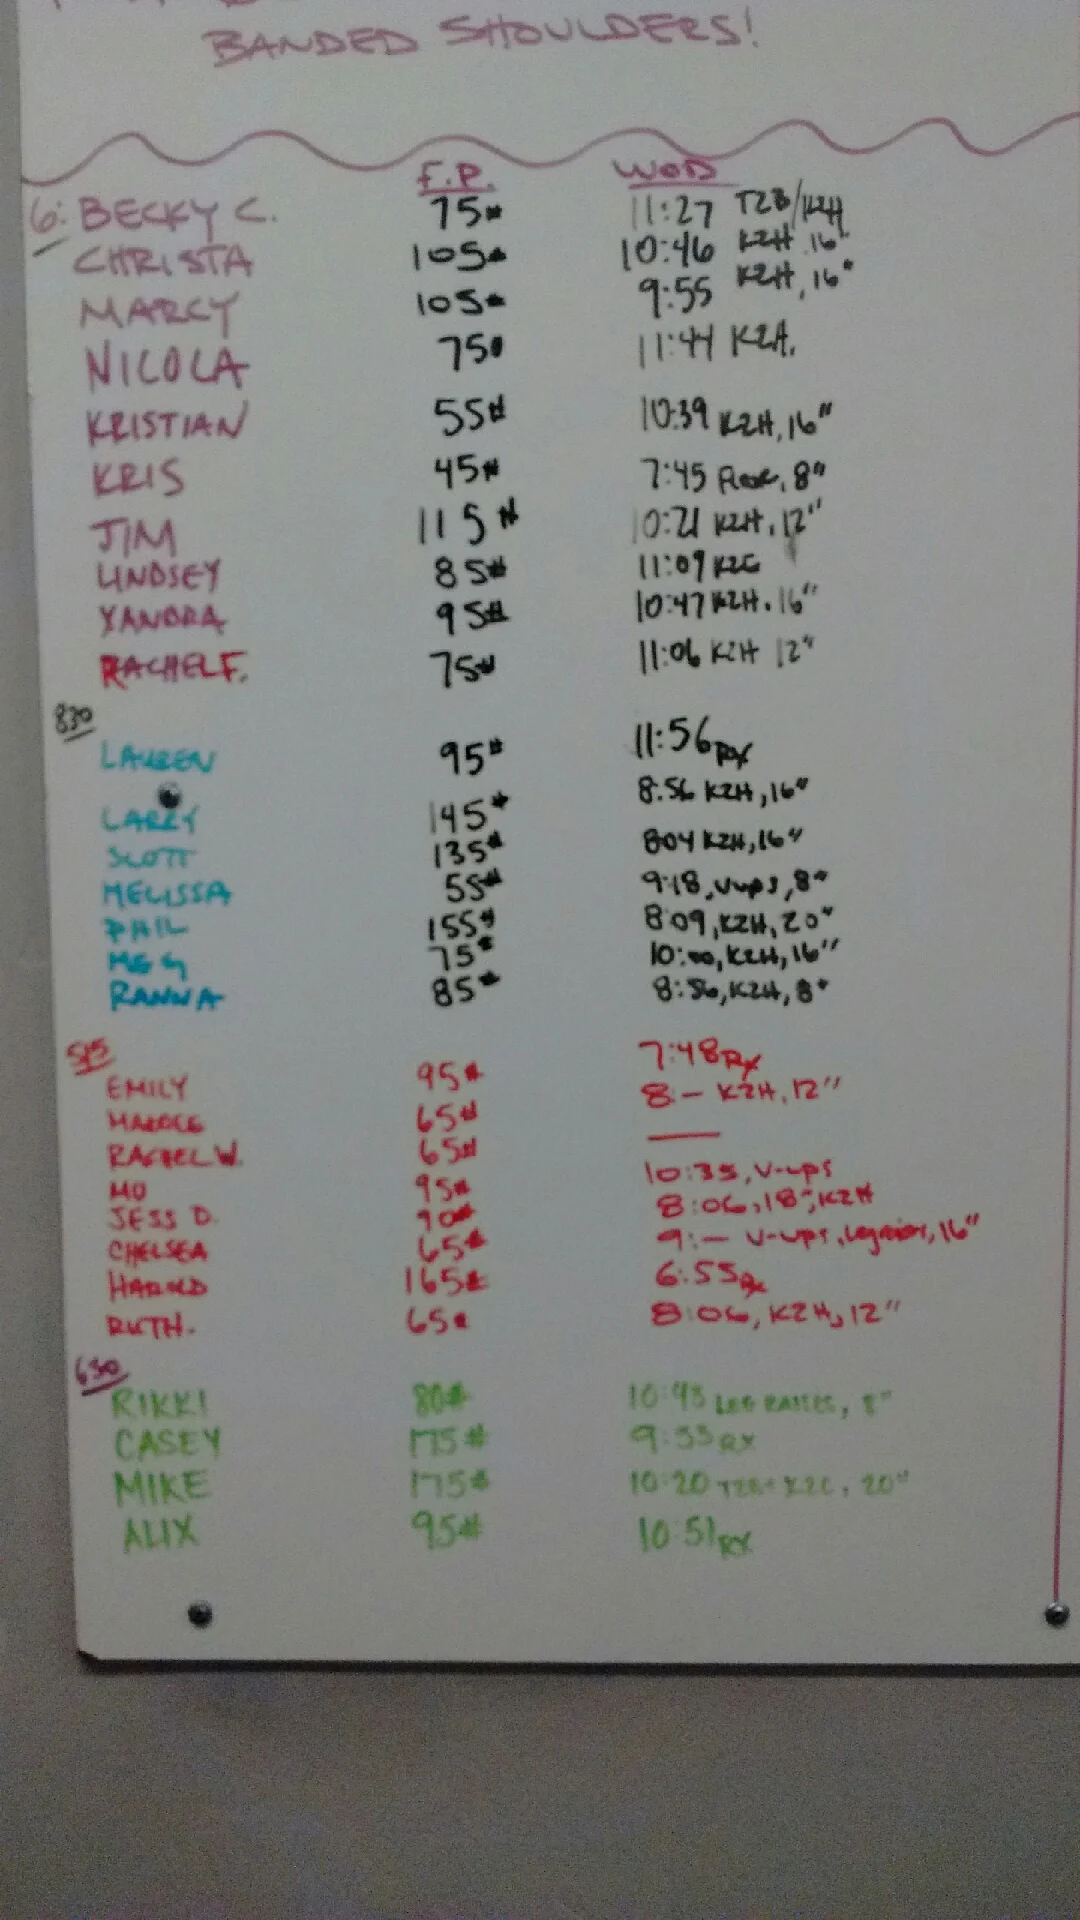 BANDED SHOULDERS!
F.P. WOD
6: BECKY C. 75# 11:27 T2B/K2H
CHRISTA 105# 10:46 K2H 16"
MARCY 105# 9:55 K2H, 16"
NICOLA 75# 11:44 K2H.
KRISTIAN 55# 10:39 K2H, 16"
KRIS 45# 7:45 8"
JIM 115# 10:21 K2H, 12"
LINDSEY 85# 11:09 K2C
XANDRA 95# 10:47 K2H. 16"
RACHEL F. 75# 11:06 K2H 12"
830
LAUREN 95# 11:56 RX
LARRY 145# 8:56 K2H, 16"
SCOTT 135# 804 K2H, 16"
MELISSA 55# 9:18, V-ups, 8"
PHIL 155# 8:09, K2H, 20"
MEG 75# 10:00, K2H, 16"
RANNA 85# 8:56, K2H, 8"
515
EMILY 95# 7:48 Rx
65# 8:— K2H, 12"
RACHEL W. 65# —
MO 95# 10:35, V-ups
JESS D. 90# 8:06, 18", K2H
CHELSEA 65# 9:— V-ups, 16"
HAROLD 165# 6:55 Rx
RUTH. 65# 8:06, K2H, 12"
630
RIKKI 80# 10:43 LEG RAISES, 8"
CASEY 175# 9:33 RX
MIKE 175# 10:20 T2B+K2C, 20"
ALIX 95# 10:51 RX